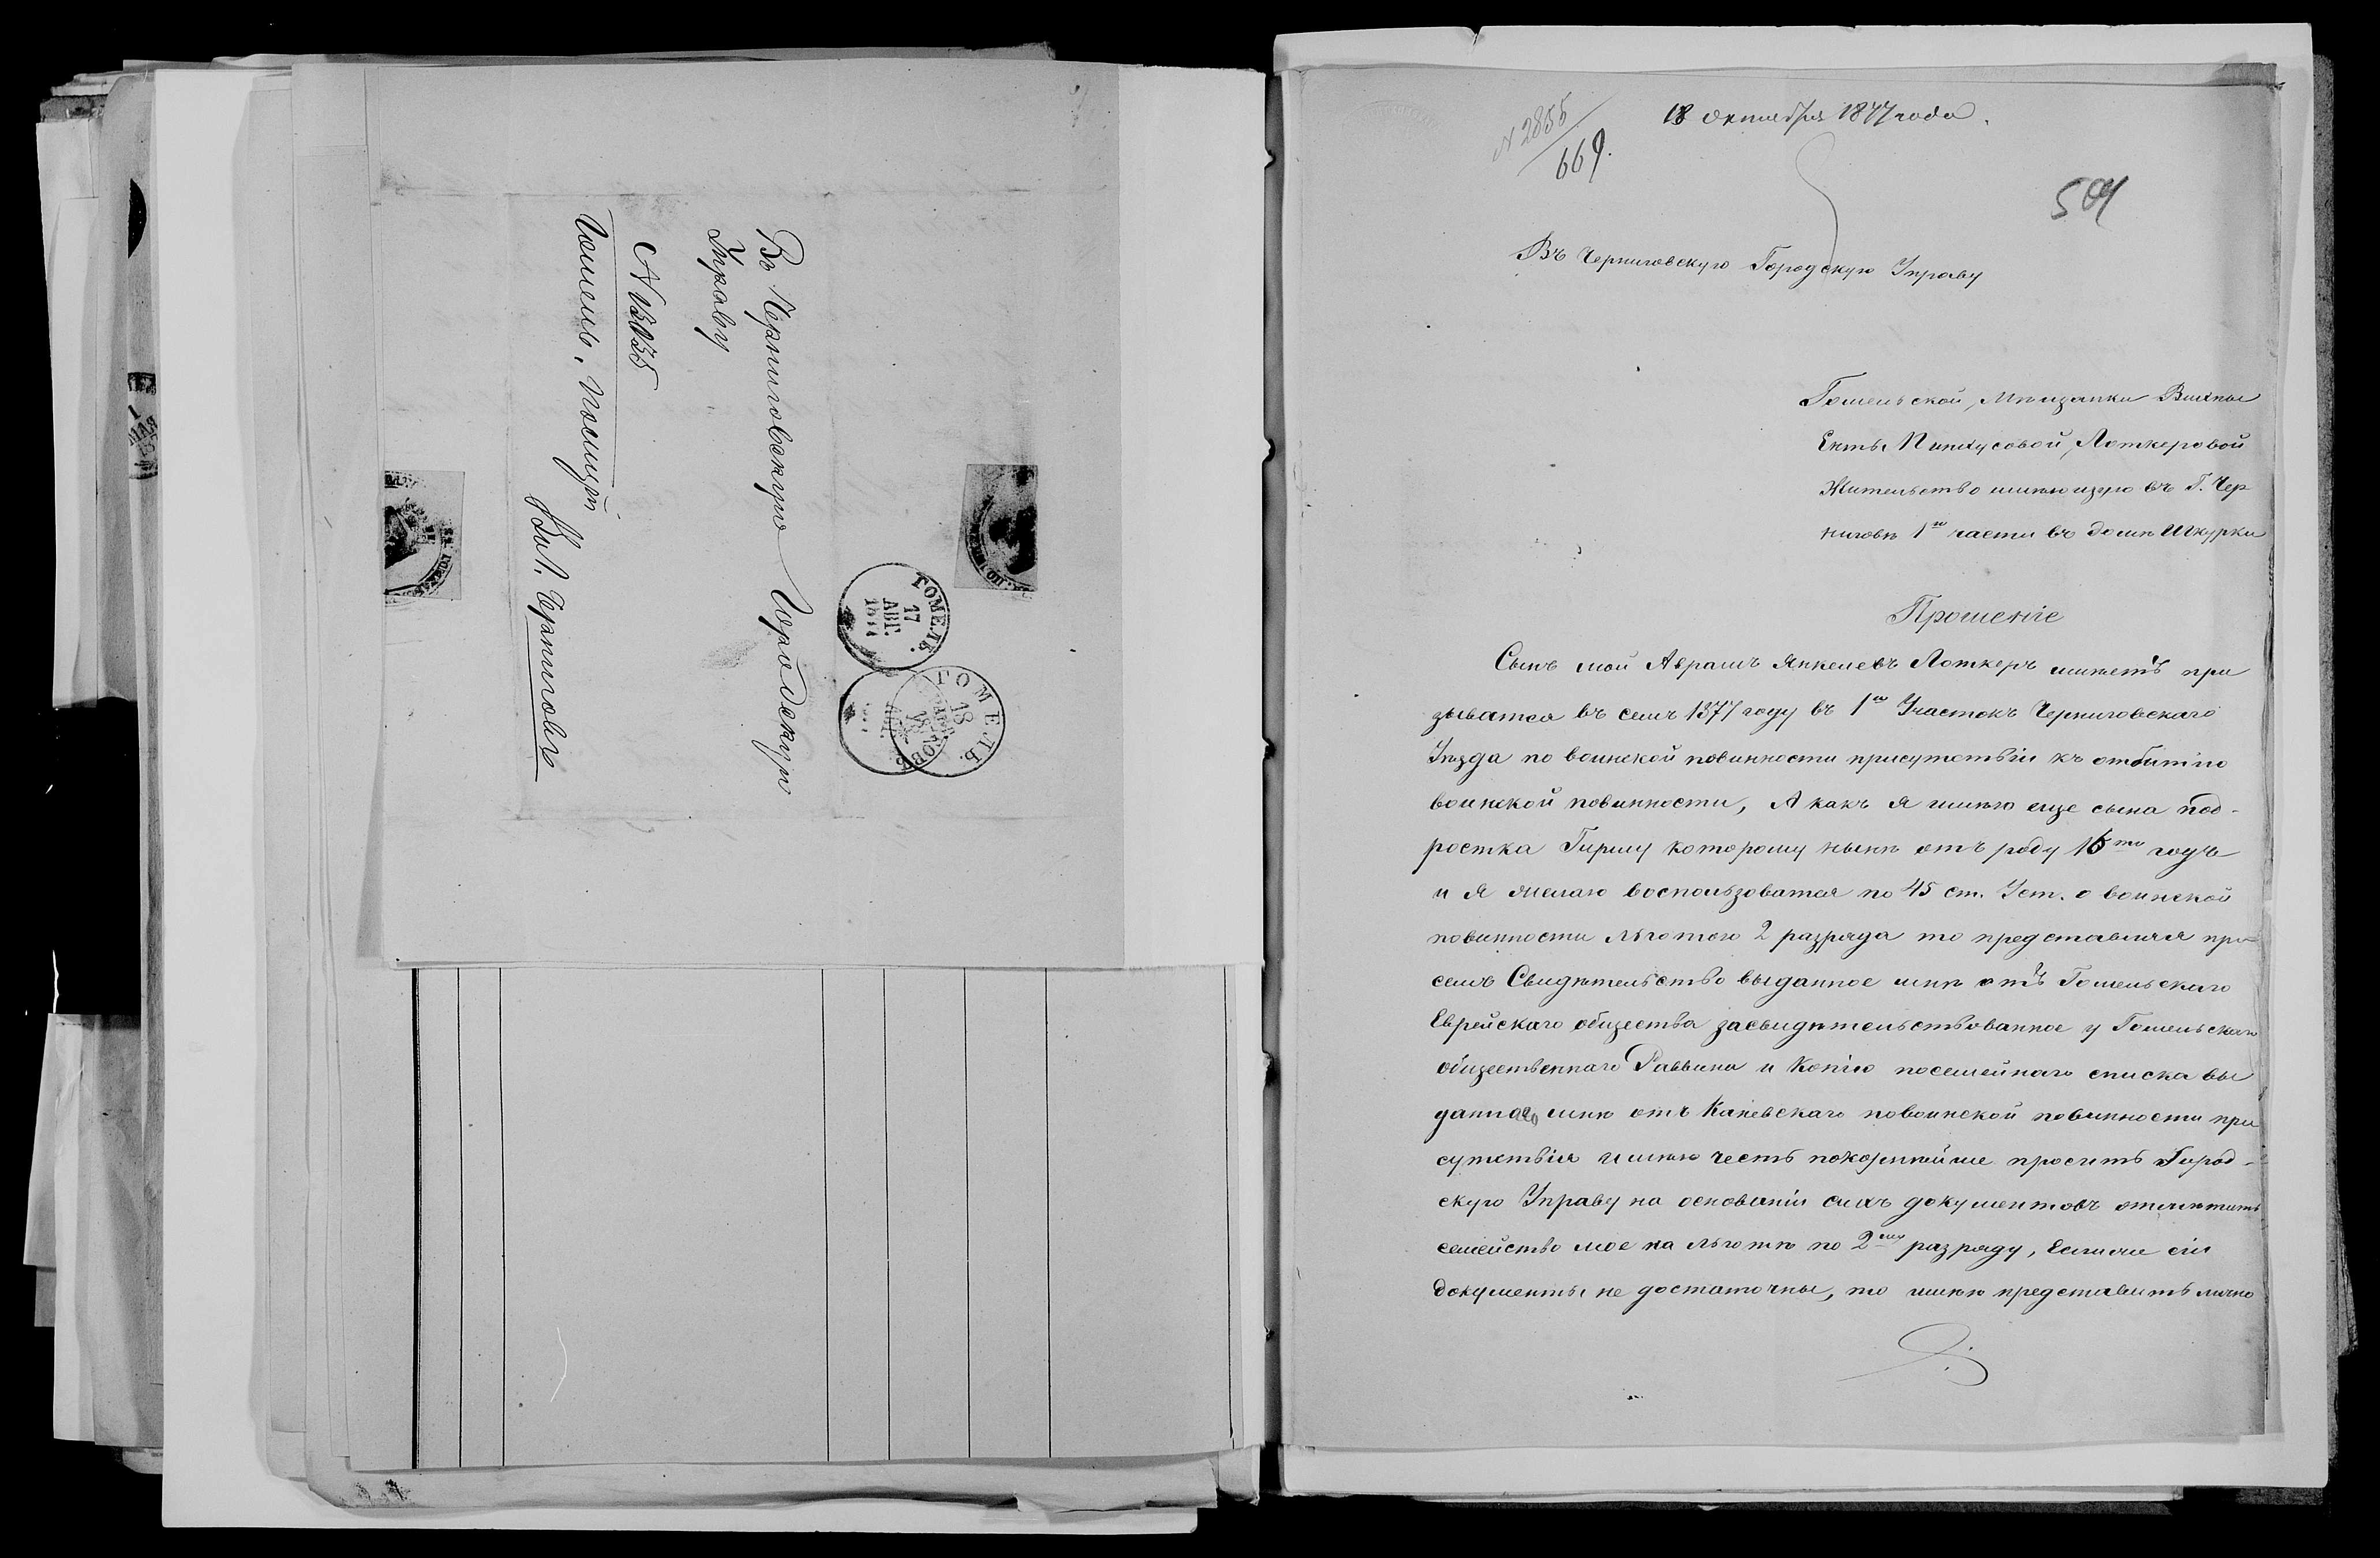 Въ Черниговскую Городскую
Управу
№ 13035
Гомель. Полиціи
Въ г. Черниговъ
ГОМЕЛЬ.
17
АВГ.
ГОМЕЛЬ.
18
№ 2855
669.
18 октября 1877 года.
504
Въ Черниговскую Городскую Управу
Гомельской, Мѣщанки
Пинхусовой, Лоткеровой
Жительство имѣющую въ Г. Чер
ниговѣ 1й части въ домѣ Шкурки
Прошеніе
Сынъ мой Абрамъ Янкелевъ Лоткеръ имѣетъ при
зыватся въ семъ 1877 году въ 1й Участокъ Черниговскаго
Уѣзда по воинской повинности присутствіи къ отбытію
воинской повинности, А какъ я имѣю еще сына под-
ростка Гиршу которому нынѣ отъ роду 16ть годъ
и я желаю воспользоватся по 45 ст. Уст. о воинской
повинности льготою 2 разряда то представляя при
семъ Свидѣтельство выданное мнѣ отъ Гомельскаго
Еврейскаго общества засвидѣтельствованное у Гомельскаго
общественнаго Раввина и Копію посемейнаго списка вы
данную мнѣ отъ Каневскаго повоинской повинности при
сутствія имѣю честь покорнѣйше просить Город-
скую Управу на основаніи сихъ документовъ отмѣтить
семейство мое на льготѣ по 2му разряду, Если же сіи
документы не достаточны, то имѣю представить лично